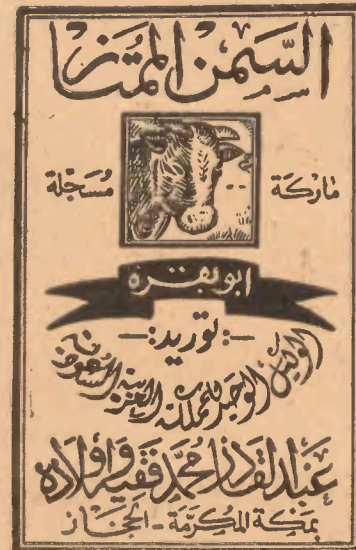 السمن الممتاز
ماركة مسجلة
ابو بقرة
-: توريد :-
الوكيل الوحيد للمملكة العربية السعودية
عبد القادر محمد فقيه واولاده
بمكة المكرمة - الحجاز